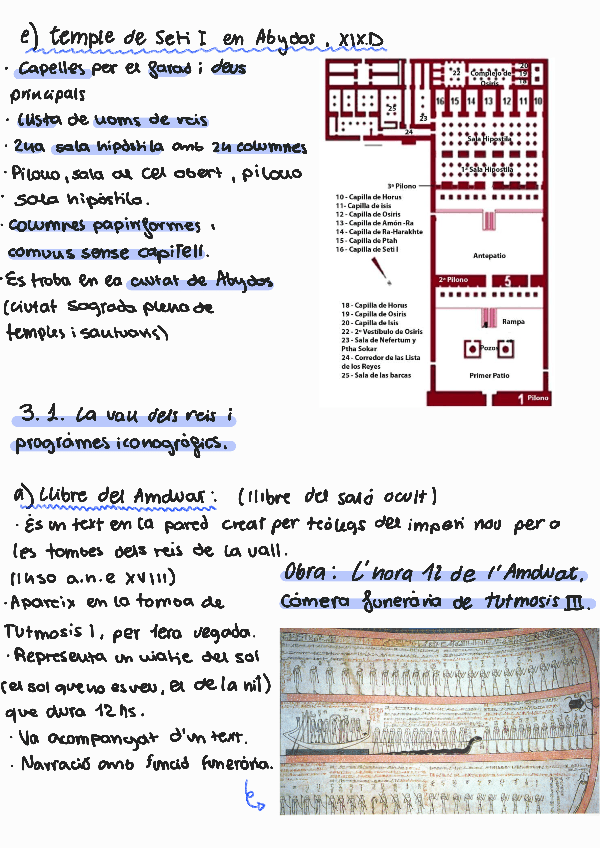 e) temple de Seti I en Abydos, XIX.D
· Capelles per el farad i deus
principals
· Llista de noms de reis
· 2na sala hipòstila amb 24 columnes
· Pilono, sala al cel obert, pilono
sala hipòstila.
· Columnes papiriformes i
comuns sense capitell.
· Es troba en la ciutat de Abydos
(ciutat sagrada plena de
temples i santuaris)
22
Complejo de
Osiris
20
19
18
16 15 14 13 12 11 10
25
23
24
Sala Hipostila
1ª Sala Hipostila
3º Pilono
10 - Capilla de Horus
11- Capilla de isis
12 - Capilla de Osiris
13 - Capilla de Amón -Ra
14 - Capilla de Ra-Harakhte
15 - Capilla de Ptah
16 - Capilla de Seti I
Antepatio
2º Pilono
5
18 - Capilla de Horus
19 - Capilla de Osiris
20 - Capilla de Isis
22 - 2º Vestíbulo de Osiris
23 - Sala de Nefertum y
Ptha Sokar
24 - Corredor de las Lista
de los Reyes
25 - Sala de las barcas
Rampa
Pozos
Primer Patio
1 Pilono
3.1. La vall dels reis i
programes iconogràfics.
a) Llibre del Amdwat: (llibre del saló ocult)
· És un text en la pared creat per teòlegs del imperi nou per a
les tombes dels reis de la vall.
(1450 a.n.e XVIII)
· Apareix en la tomba de
Tutmosis I, per 1era vegada.
· Representa un viatje del sol
(el sol que no es veu, el de la nit)
que dura 12 hs.
· Va acompanyat d'un text.
· Narració amb funció funerària.
Obra: L'hora 12 de l'Amdwat,
Càmera funerària de Tutmosis III.